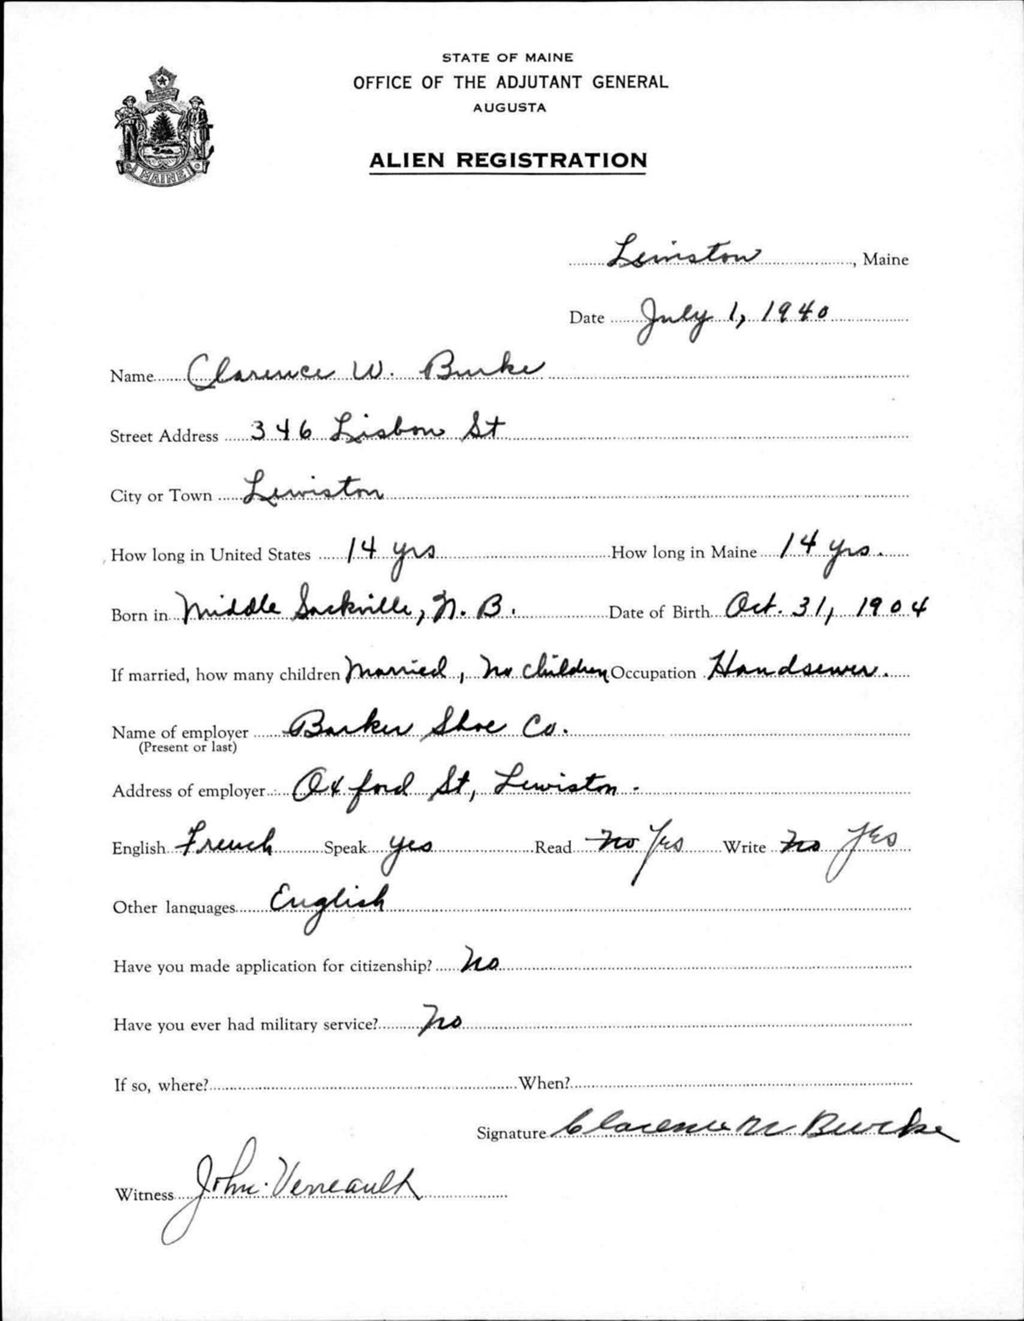 STATE OF MAINE
OFFICE OF THE ADJUTANT GENERAL
AUGUSTA
MAINE
ALIEN REGISTRATION
Lewiston, Maine
Date July 1, 1940
Name Clarence W. Burke
Street Address 346 Lisbon St
City or Town Lewiston
How long in United States 14 yrs How long in Maine 14 yrs.
Born in Middle Sackville, N. B. Date of Birth Oct. 31, 1904
If married, how many children Married, no children Occupation Handsewer.
Name of employer Barker Shoe Co.
(Present or last)
Address of employer Oxford St, Lewiston.
English French Speak yes Read no Yes Write no Yes
Other languages English
Have you made application for citizenship? No
Have you ever had military service? No
If so, where? When?
Signature Clarence W Burke
Witness John